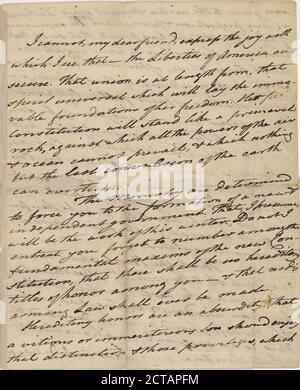 I cannot, my dear friend, express the joy with
which I see that — the Liberties of America are
secure. That union is at length firm, that
spirit universal which will lay the immo-
vable foundations of her freedom. Her
Constitution will stand like a primeval
rock, against which all the powers of the air
& ocean cannot prevail, & which nothing
but the last convulsion of the earth
can overthrow.
The Ministry are determined
to force you to the formation of a new &
independent government. That I presume
will be the work of this winter. Do not I
entreat you forget to number among the
fundamental maxims of the new Con-
stitution, that there shall be no hereditary
titles of honor among you — & that no
arming Law shall ever be made.
Hereditary honors are an absurdity, that
a vitious or unmeritorious Son should enjoy
that distinction & those privileges, which
alamy
www.alamy.com
Image ID: 2CTAPFM